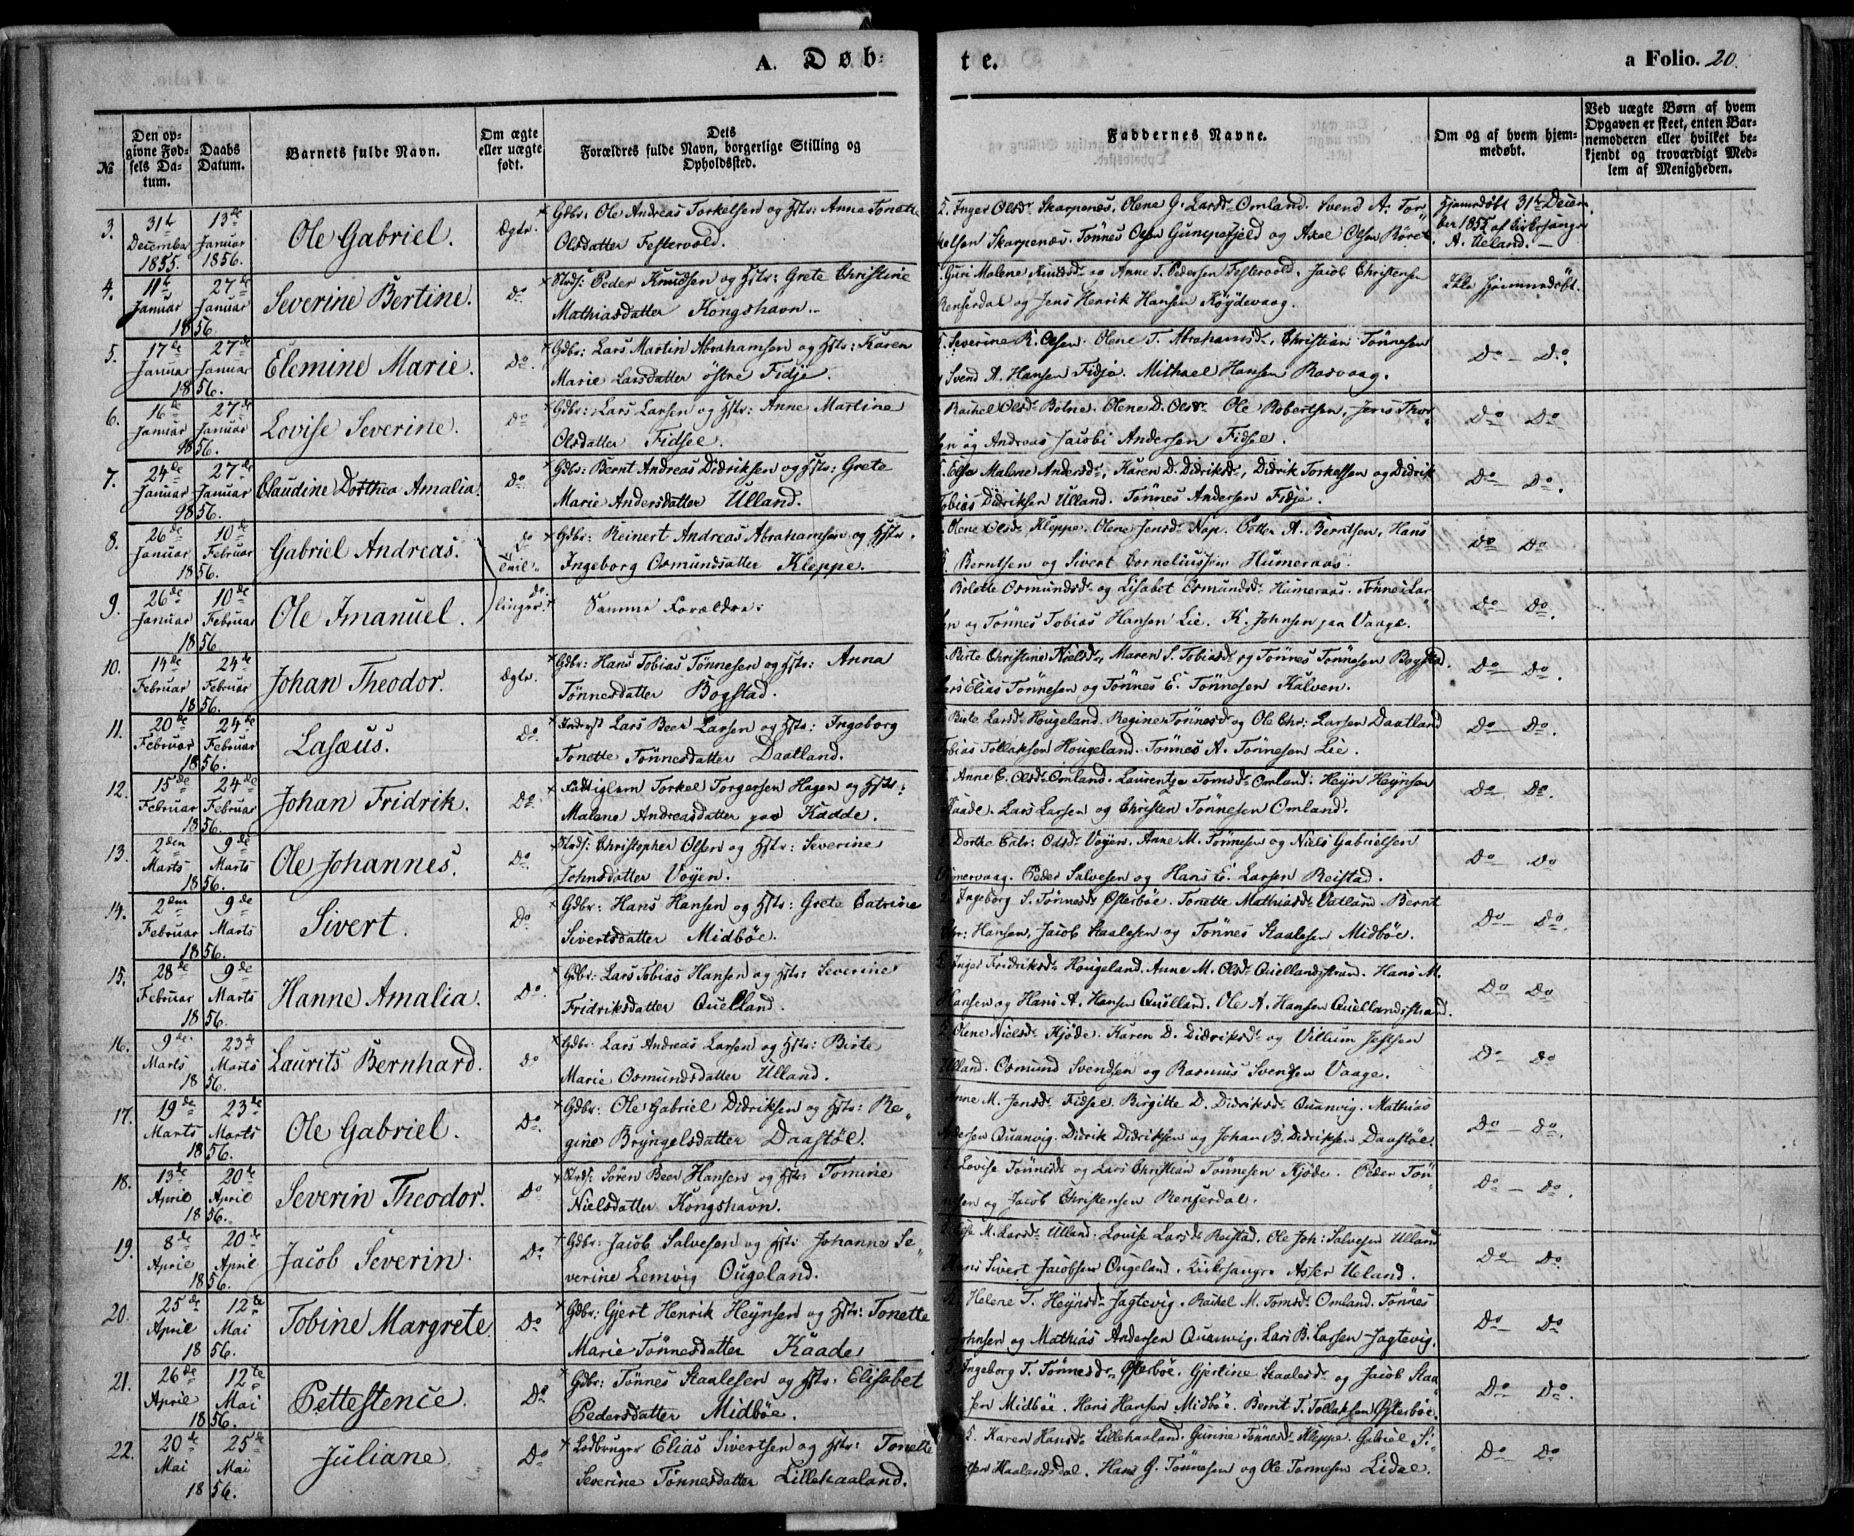 A. Døb-
te.
a Folio. 20.
№
Den opgivne Fødsels Datum.
Daabs Datum.
Barnets fulde Navn.
Om ægte eller uægte født.
Dets Forældres fulde Navn, borgerlige Stilling og Opholdssted.
Faddernes Navne.
Om og af hvem hjemmedøbt.
Ved uægte Børn af hvem Opgaven er skeet, enten Barnemoderen eller hvilket bekjendt og troværdigt Medlem af Menigheden.
3. 31te December 1855. 13de Januar 1856. Ole Gabriel. Ægte. Gdbr: Ole Andreas Torkelsen og Hstr: Anne Tonette
Olsdatter Festervold.
Inger Olsd. Skarpenes. Olene G. Larsd. Omland. Svend A. Tor-
kelsen Skarpenæs. Tönnes Olsen Gunepafjeld og Axel Olsen Röret
Hjemmedöbt 31te Decem-
ber 1855 af Kirkesanger
A. Ueland.
4. 11te Januar 27de Januar 1856. Severine Bertine. Do Peder Knudsen og Hstr: Grete Christine
Mathiasdatter Kongshavn.
Guri Malene Knudsd. og Anne T. Pedersen Festervold. Jacob Christensen
Renserdal og Jens Henrik Hansen Köydevaag.
Ikke Hjemmedöbt.
5. 17de Januar 27de Januar 1856. Elemine Marie. Do Gdbr: Lars Martin Abrahamsen og Hstr: Karen
Marie Larsdatter östre Fidje.
Severine R. Olsen. Olene T. Abrahamsd., Christian Tönnesen
Svend A. Hansen Fidje. Mikhael Hansen Rosvaag.
Do - Do.
6. 16de Januar 27de Januar 1856. Lovise Severine. Do Gdbr: Lars Larsen og Hstr: Anne Martine
Olsdatter Fidsel.
Rachel Olsd. Bolne. Olene D. Olsd. Ole Robertsen, Jens Thor-
sen og Andreas Jacobi Andersen Fidsel.
Do Do
7. 24de Januar 27de Januar 1856. Claudine Dorthea Amalia. Do Gdbr: Bernt Andreas Didriksen og Hstr: Grete
Marie Andersdatter Ulland.
Else Malene Andersd., Karen D. Didriksd., Didrik Torkelsen og Didrik
Tobias Didriksen Ulland. Tönnes Andersen Fidje.
Do - Do.
8. 26de Januar 10de Februar 1856. Gabriel Andreas. Do Tvil- Gdbr: Reinert Andreas Abrahamsen og Hstr.
Ingeborg Osmundsdatter Kleppe.
Olene Olsd. Kleppe. Olene Jensd. Nap. Peder A. Berntsen, Hans
Berntsen og Sivert Corneliussen Humeraas.
Do Do
9. 26de Januar 10de Februar 1856. Ole Imanuel. linger. Do Samme Forældre:
Bolette Osmundsd. og Lisabet Osmundsd. Humeraas. Tönnes Lar-
sen og Tönnes Tobias Hansen Lie. K. Johnsen paa Vaage.
Do - Do.
10. 14de Februar 24de Februar 1856. Johan Theodor. Ægte. Gdbr: Hans Tobias Tönnesen og Hstr: Anna
Tönnesdatter Bogstad.
Birte Christine Nielsd., Maren S. Tobiasd. og Tönnes Tönnesen Bogstad.
Lars Elias Tönnesen og Tönnes E. Tönnesen Kalven.
Do - Do.
11. 20de Februar 24de Februar 1856. Lasæus. Do. Lars Beer Larsen og Hstr: Ingeborg
Tonette Tönnesdatter Daatland.
Birte Larsd. Hougeland. Regine Tönnesd. og Ole Chr: Larsen Daatland
Tobias Tollaksen Hougeland. Tönnes A. Tönnesen Lie.
Do - Do.
12. 15de Februar 24de Februar 1856. Johan Fridrik. Do. Fattiglem Torkel Torgersen Hagen og Hstr:
Malene Andreasdatter paa Kaade.
Anne C. Olsd. Omland. Laurentze Tomsd. Omland. Heyn Heynsen
Kaade. Lars Larsen og Christen Tönnesen Omland.
Do - Do.
13. 2den Marts 9de Marts 1856. Ole Johannes. Do. Christopher Olsen og Hstr: Severine
Johnsdatter Voyen.
Dorthe Catr: Olsd. Voyen. Anne M. Tönnesen og Niels Gabrielsen
Peder Salvesen og Hans E. Larsen Reistad.
Do - Do
14. 2den Februar 9de Marts 1856. Sivert. Do Gdbr: Hans Hansen og Hstr: Grete Catrine
Sivertsdatter Midböe.
Ingeborg S. Tönnesd. Österböe. Tonette Mathiasd. Vatland. Bernt
Chr: Hansen, Jacob Staalesen og Tönnes Staalesen Midböe.
Do - Do.
15. 28de Februar 9de Marts 1856. Hanne Amalia. Do. Gdbr: Lars Tobias Hansen og Hstr: Severine
Fridriksdatter Quelland.
Inger Fridriksd. Hougeland. Anne M. Olsd. Quellandstrand. Hans M.
Hansen og Hans A. Hansen Quelland. Ole A. Hansen Quellandstrand.
Do Do
16. 9de Marts 23de Marts 1856. Laurits Bernhard. Do Gdbr: Lars Andreas Larsen og Hstr: Birte
Marie Osmundsdatter Ulland.
Olene Nielsd. Kjöde. Karen D. Didriksd. og Villum Jessen
Ulland. Osmund Svendsen og Rasmus Svensen Vaage.
Do - Do
17. 19de Marts 23de Marts 1856. Ole Gabriel. Do. Gdbr: Ole Gabriel Didriksen og Hstr: Re-
gine Bryngelsdatter Daastöl.
Anne M. Jensd. Fidsel. Birgitte D. Didriksd. Quanvig. Mathias
Andersen Quanvig. Didrik Didriksen og Johan B. Didriksen Daastöl.
Do - Do.
18. 13de April 20de April 1856. Severin Theodor. Do Sören Beer Hansen og Hstr: Tomine
Nielsdatter Kongshavn.
Lovise Tönnesd. og Lars Christian Tönnesen Kjöde. Peder Tön-
nesen og Jacob Christensen Renserdal.
Do - Do.
19. 8de April 20de April 1856. Jacob Severin. Do Gdbr: Jacob Salvesen og Hstr: Johanne Se-
verine Lemvig Ougeland.
M. Larsd. Ulland. Lovise Larsd. Reistad. Ole Joh: Salvesen Ulland
Hans Sivert Jacobsen Ougeland. Kirkesanger Asser Ueland.
Do Do.
20. 25de April 12te Mai 1856. Tobine Margrete. Do Gdbr: Gjert Henrik Heynsen og Hstr: Tonette
Marie Tönnesdatter Kaade.
Helene T. Heynsd. Jagtevig. Rachel M. Tomsd. Omland. Tönnes
Johnsen og Mathias Andersen Quanvig. Lars B. Larsen Jagtevig.
Do - Do
21. 26de April 12te Mai 1856. Pettestence. Do Gdbr: Tönnes Staalesen og Hstr: Elisabet
Pedersdatter Midböe.
Ingeborg T. Tönnesd. Österböe. Gjertine Staalesd. og Jacob Staa-
sen Midböe. Hans Hansen Midböe. Bernt T. Tollaksen Österböe.
Do - Do.
22. 20de Mai 25de Mai 1856. Juliane. Do Lodbruger Elias Sivertsen og Hstr: Tonette
Severine Tönnesdatter Lillehaaland.
Karen Hansd. Lillehaaland. Gunine Tönnesd. Kleppe. Gabriel Si-
vertsen Haalandsdal. Hans G. Tönnesen og Ole Tomesen Lidal.
Do Do